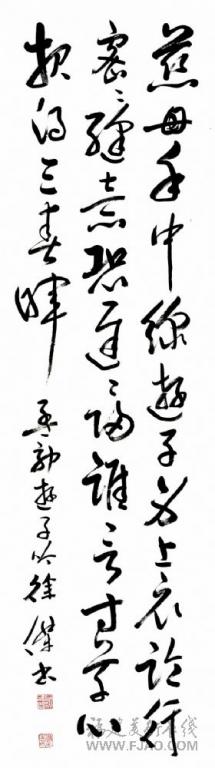 慈母手中線遊子身上衣臨行
密〻縫意恐遲〻歸誰言寸草心
報得三春暉 孟郊遊子吟 徐傑書
福建美术在线
WWW.FJAO.COM